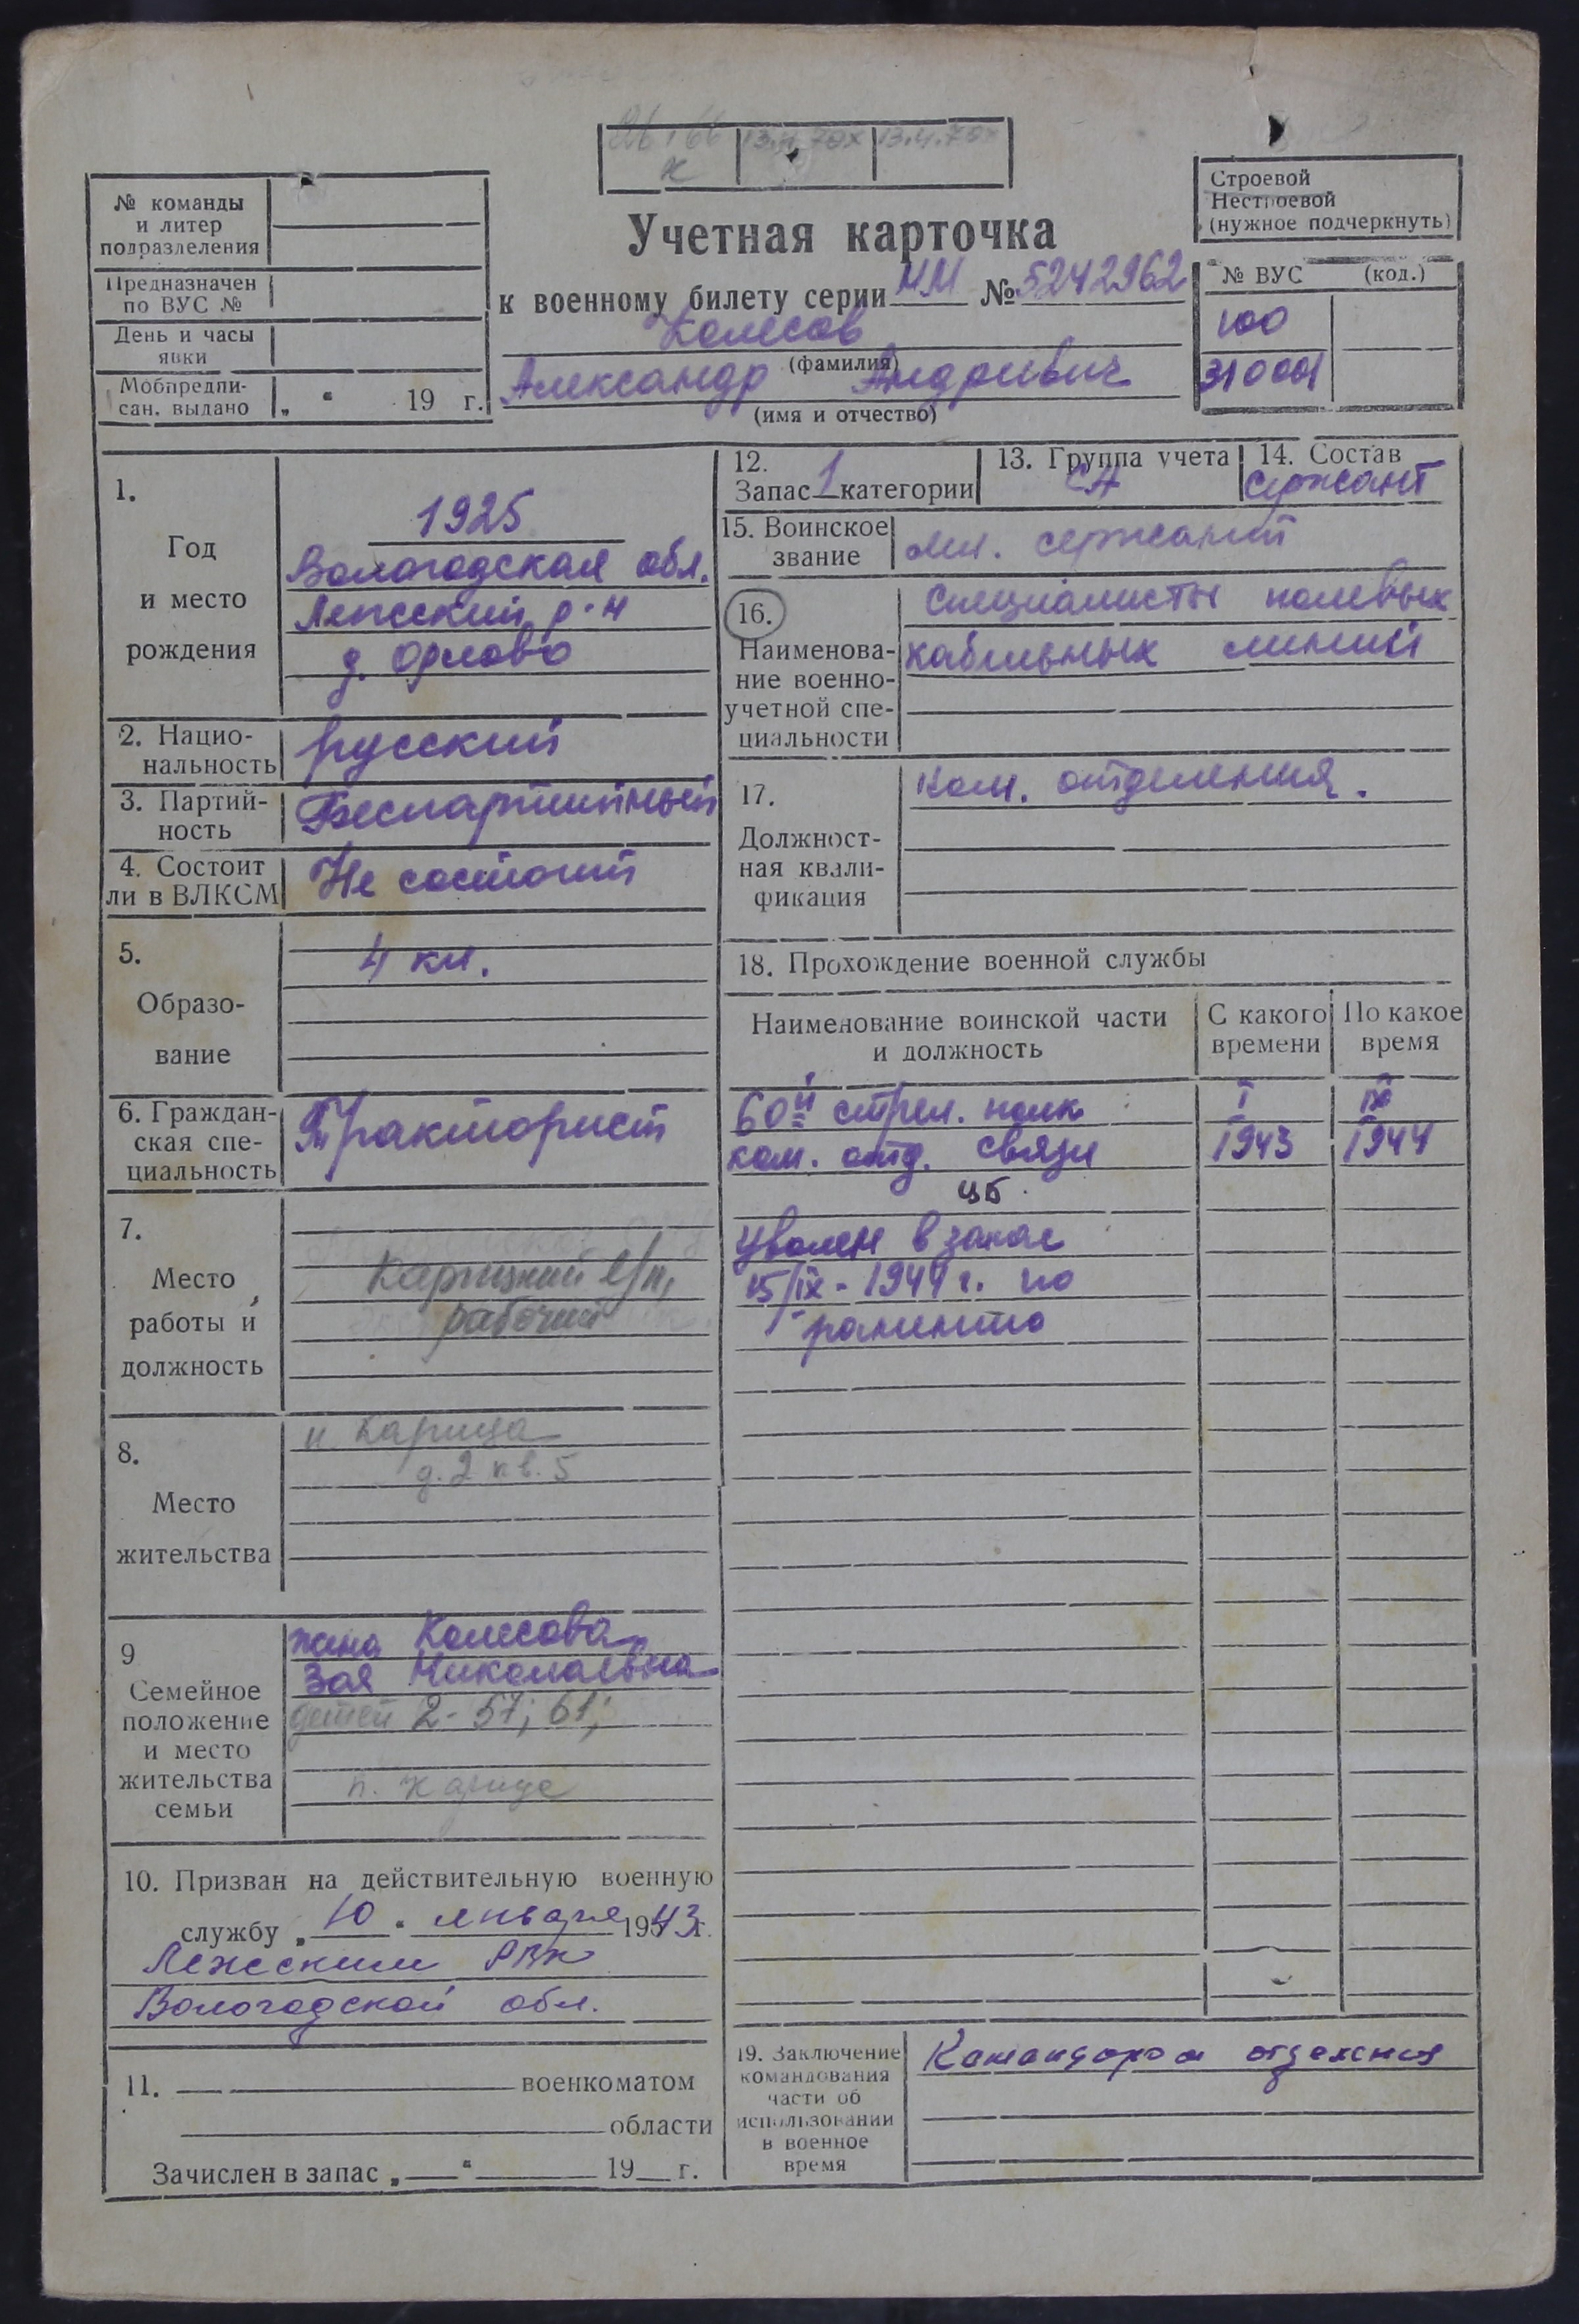 13.4.70х 13.4.70х
к
№ команды
и литер
подразделения
Предназначен
по ВУС №
День и часы
явки
Мобпредпи-
сан. выдано „ “ 19 г.
Учетная карточка
к военному билету серии НМ № 5242962
Колесов
(фамилия)
Александр Андреивич
(имя и отчество)
Строевой
Нестроевой
(нужное подчеркнуть)
№ ВУС (код.)
100
310001
1.
Год
и место
рождения
1925
Вологодская обл.
д. Орлово
2. Нацио-
нальность
русский
3. Партий-
ность
Беспартийный
4. Состоит
ли в ВЛКСМ
Не состоит
5.
Образо-
вание
4 кл.
6. Граждан-
ская спе-
циальность
Тракторист
7.
Место
работы и
должность
Карицкий л/п,
рабочий
8.
Место
жительства
п Карица
д. 2 кв. 5
9
Семейное
положение
и место
жительства
семьи
жена Колесова
Зоя Николаевна
детей 2 - 57; 61;
п. Карица
10. Призван на действительную военную
службу „ 10 “ января 1943 г.
Лежским РВК
Вологодской обл.
11. военкоматом
области
Зачислен в запас „ “ 19 г.
12.
Запас 1 категории
13. Группа учета
СА
14. Состав
сержант
15. Воинское
звание
мл. сержант
16.
Наименова-
ние военно-
учетной спе-
циальности
Специалисты полевых
кабельных линий
17.
Должност-
ная квали-
фикация
Ком. отделения.
18. Прохождение военной службы
Наименование воинской части
и должность
С какого
времени
По какое
время
60й стрел. полк I IX
ком. отд. связи 1943 1944
ЦБ.
Уволен в запас
15/IX - 1944 г. по
ранению
19. Заключение
командования
части об
использовании
в военное
время
Командиром отделения